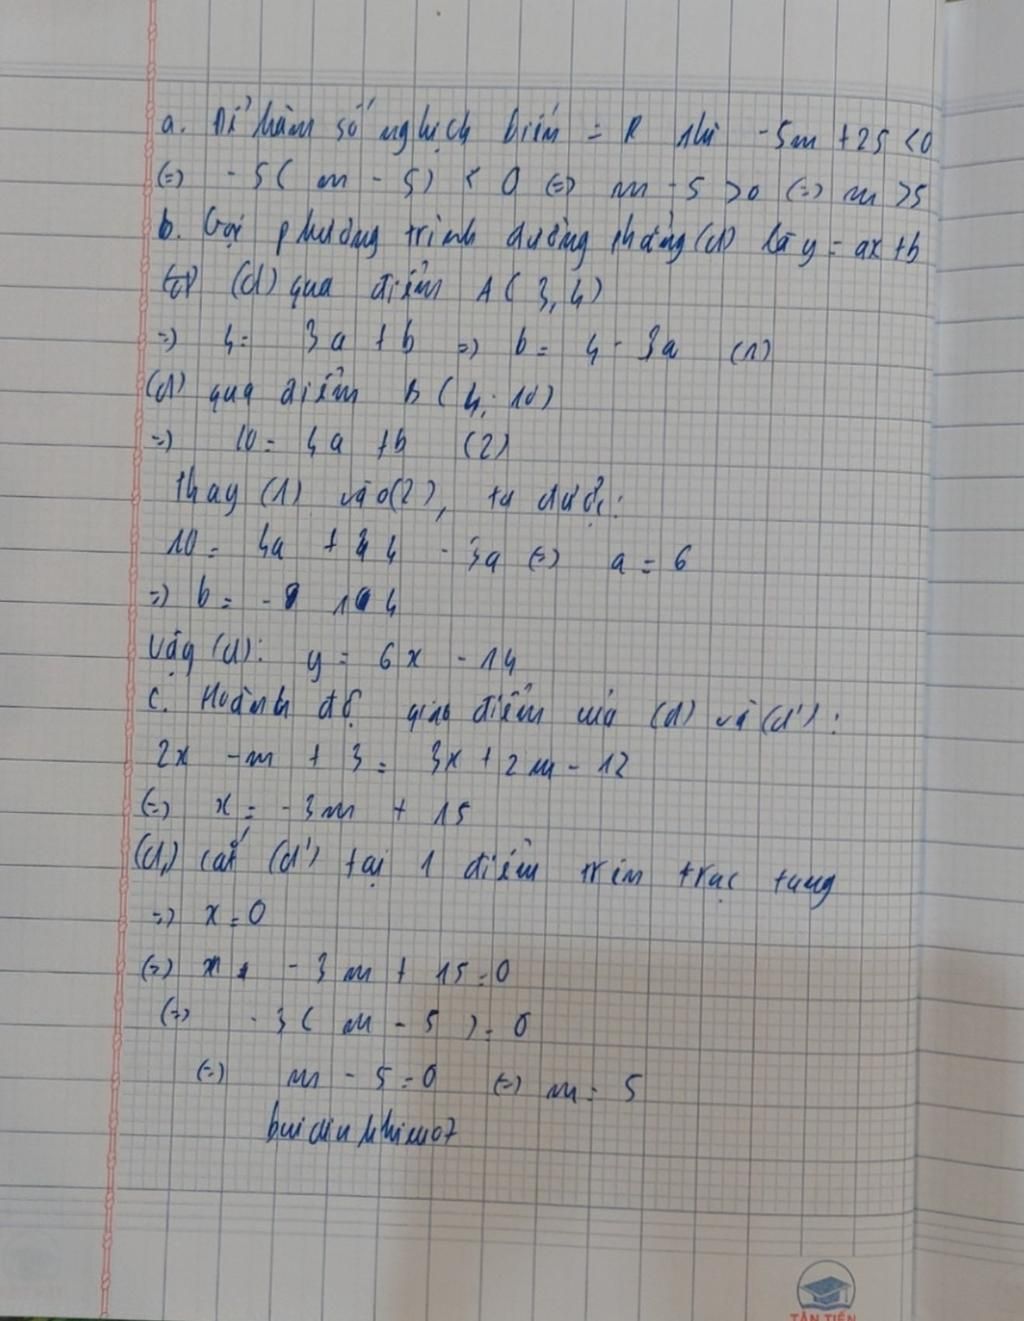 a. Để hàm số nghịch biến = R thì -5m + 25 < 0
(=) -5( m - 5) < 0 (=) m - 5 > 0 (=) m > 5
b. Gọi phương trình đường thẳng (d) là y = ax + b
(d) qua điểm A ( 3, 4)
=) 4 = 3a + b =) b = 4 - 3a (1)
(d) qua điểm B ( 4; 10)
=) 10 = 4a + b (2)
thay (1) vào (2), ta được:
10 = 4a + 4 - 3a (=) a = 6
=) b = - 14
Vậy (d): y = 6x - 14
c. Hoành độ giao điểm của (d) và (d'):
2x - m + 3 = 3x + 2m - 12
(=) x = -3m + 15
(d) cắt (d') tại 1 điểm trên trục tung
=) x = 0
(=) -3m + 15 = 0
(=) -3( m - 5 ) = 0
(=) m - 5 = 0 (=) m = 5
TÂN TIẾN